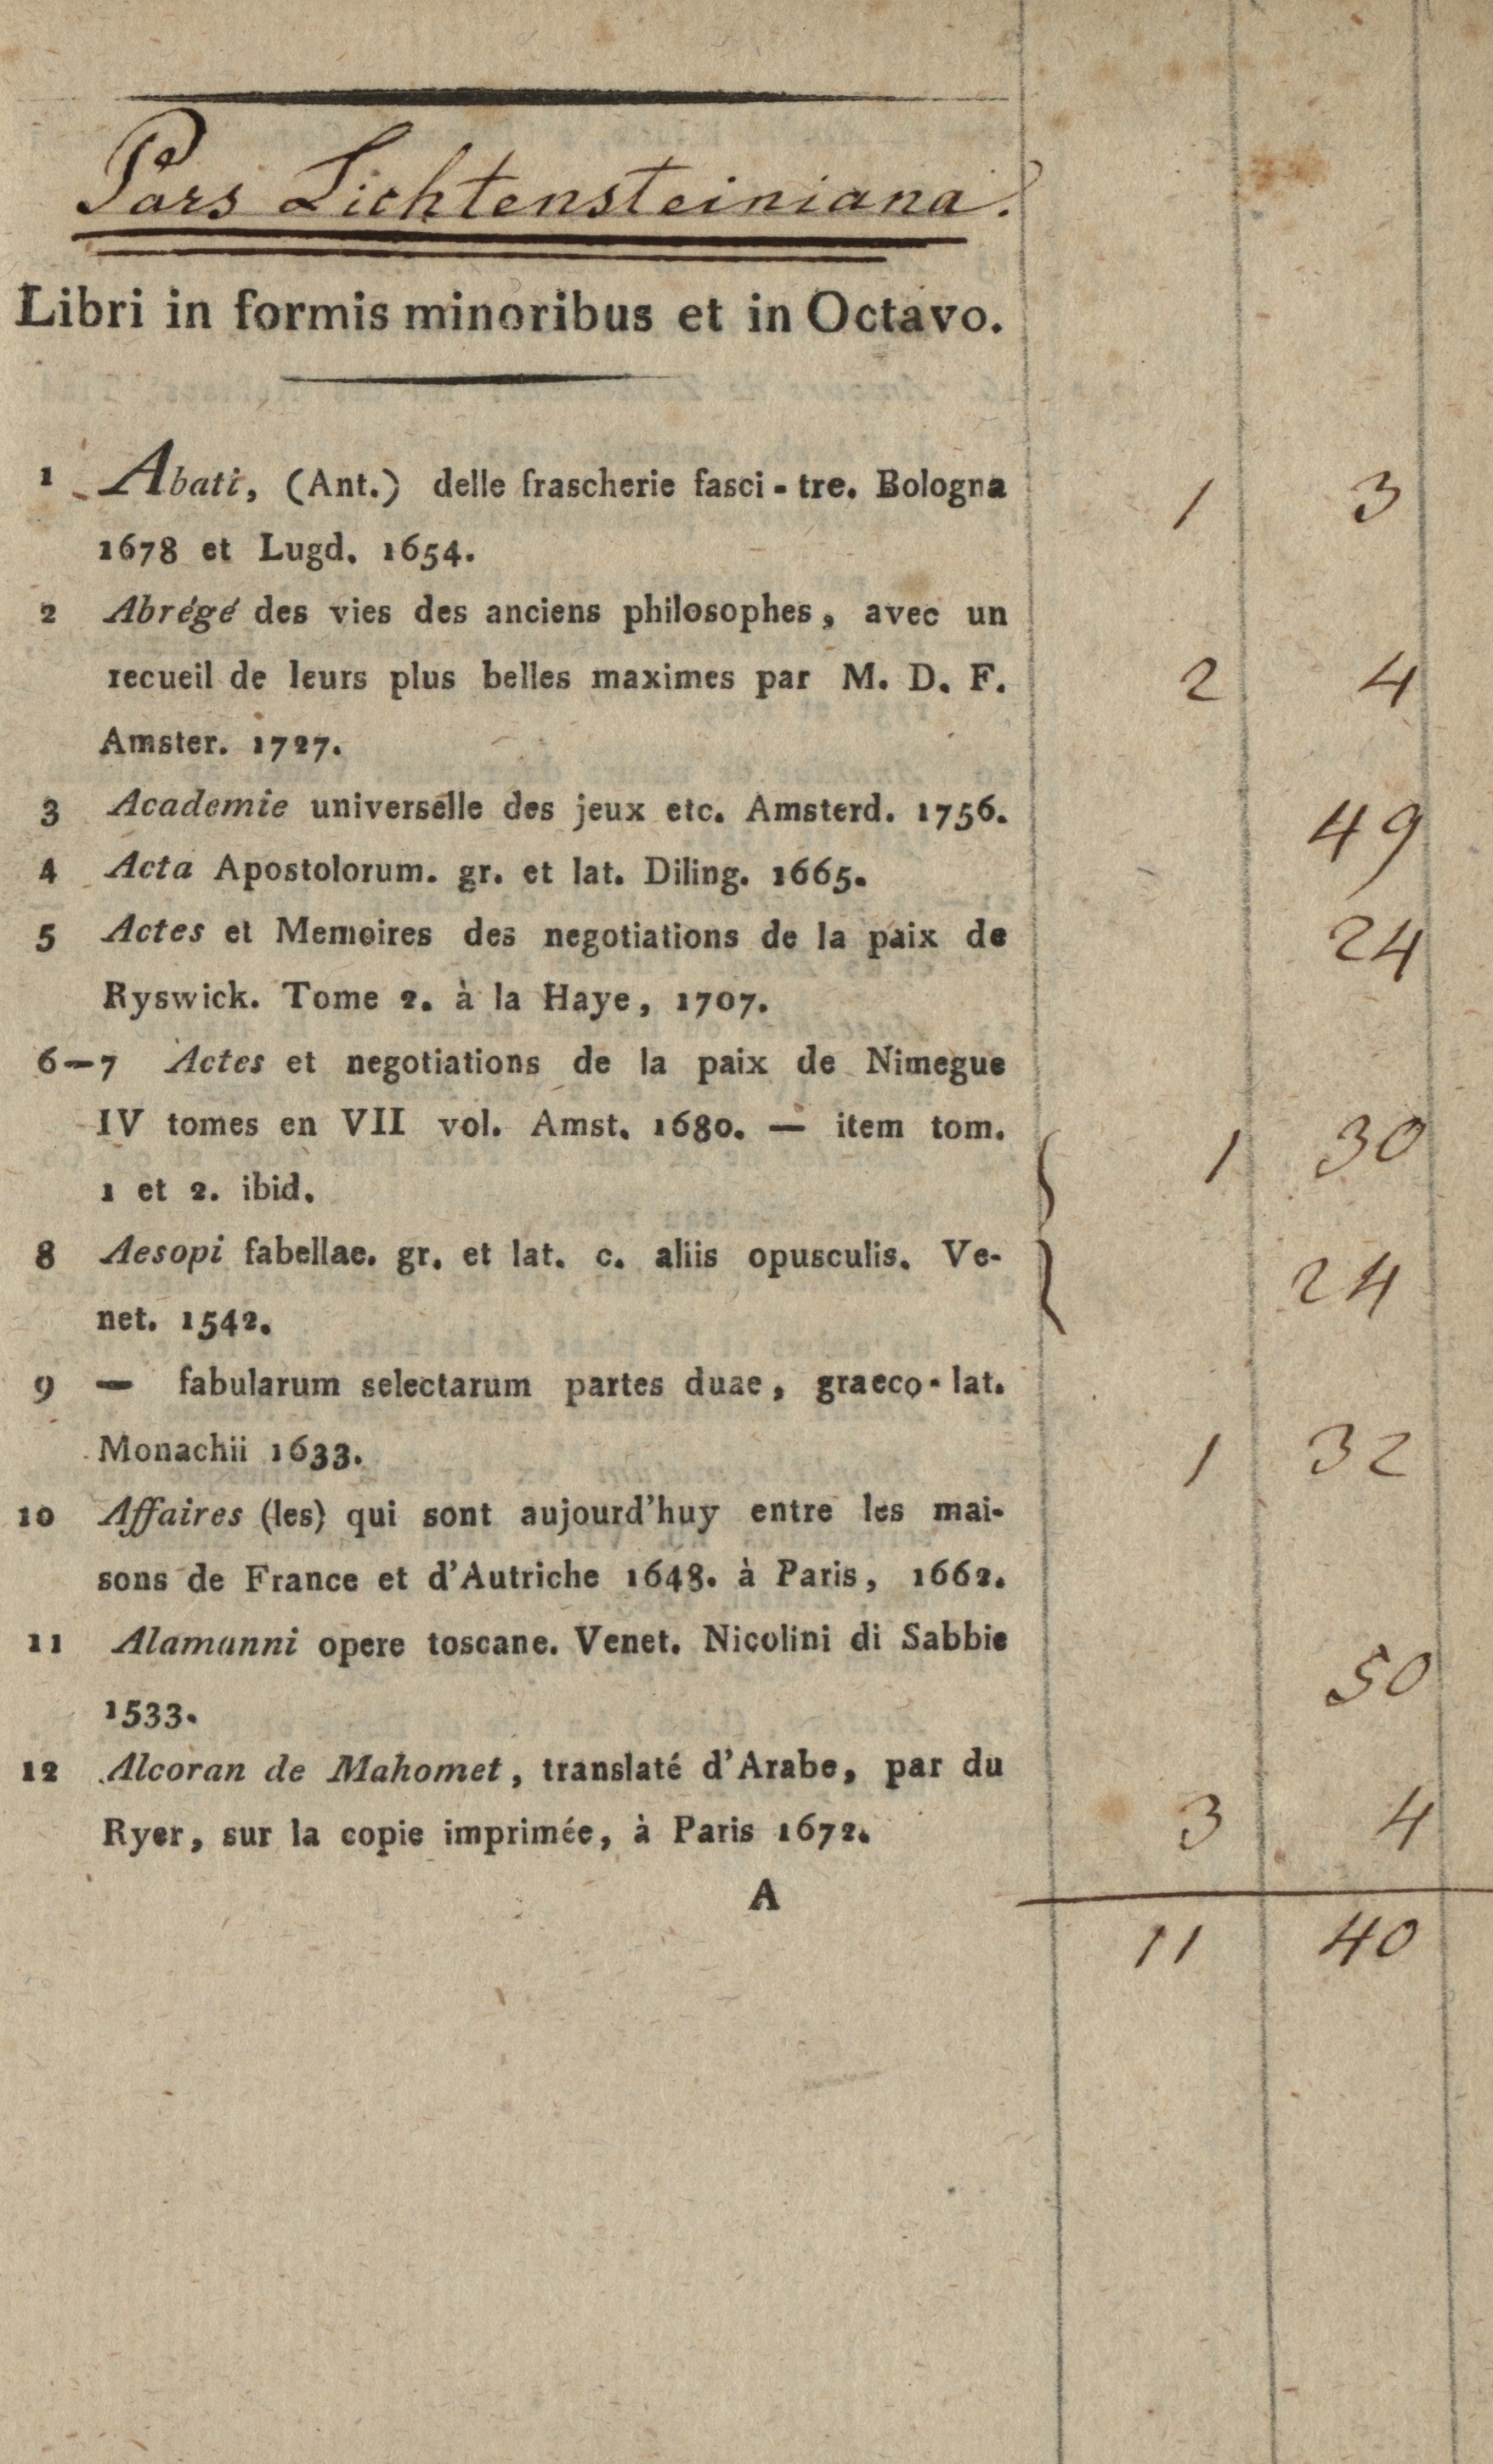 Pars Lichtensteiniana.
Libri in formis minoribus et in Octavo.
1 Abati, (Ant.) delle frascherie fasci-tre. Bologna
1678 et Lugd. 1654. 1 3
2 Abrégé des vies des anciens philosophes, avec un
recueil de leurs plus belles maximes par M. D. F. 2 4
Amster. 1727.
3 Academie universelle des jeux etc. Amsterd. 1756. 49
4 Acta Apostolorum. gr. et lat. Diling. 1665.
5 Actes et Memoires des negotiations de la paix de 24
Ryswick. Tome 2. à la Haye, 1707.
6—7 Actes et negotiations de la paix de Nimegue
IV tomes en VII vol. Amst. 1680. — item tom. 1 30
1 et 2. ibid.
8 Aesopi fabellae. gr. et lat. c. aliis opusculis. Ve- 24
net. 1542.
9 — fabularum selectarum partes duae, graeco-lat.
Monachii 1633. 1 32
10 Affaires (les) qui sont aujourd'huy entre les mai-
sons de France et d'Autriche 1648. à Paris, 1662.
11 Alamanni opere toscane. Venet. Nicolini di Sabbie 50
1533.
12 Alcoran de Mahomet, translaté d'Arabe, par du
Ryer, sur la copie imprimée, à Paris 1672. 3 4
A
11 40